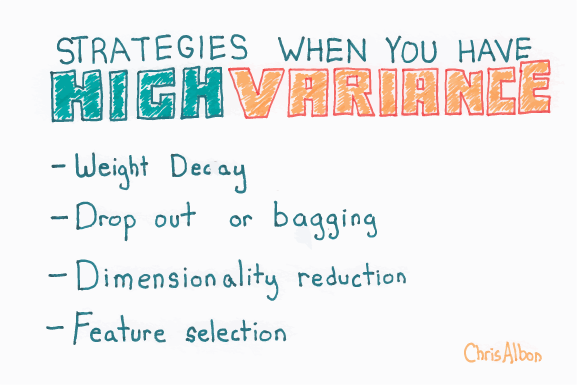 STRATEGIES WHEN YOU HAVE
HIGH VARIANCE
- Weight Decay
- Drop out or bagging
- Dimensionality reduction
- Feature selection
ChrisAlbon